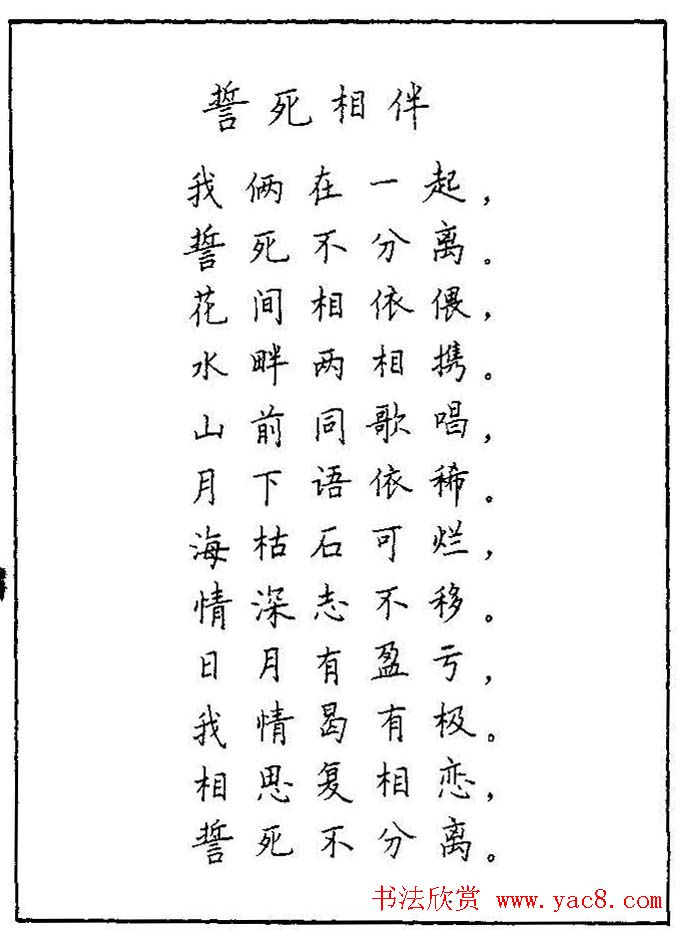 誓死相伴
我俩在一起，
誓死不分离。
花间相依偎，
水畔两相携。
山前同歌唱，
月下语依稀。
海枯石可烂，
情深志不移。
日月有盈亏，
我情曷有极。
相思复相恋，
誓死不分离。
书法欣赏 www.yac8.com